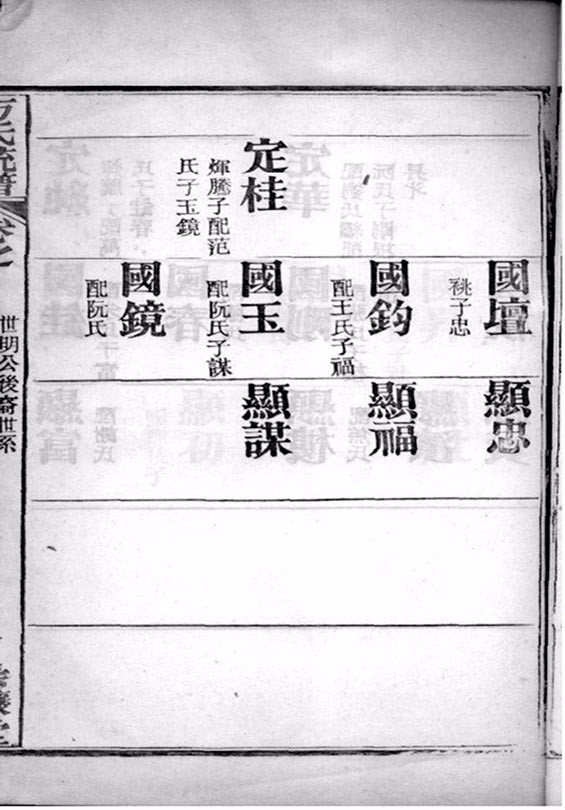 國壇
祧子忠
國鈞
配王氏子福
定桂
煇騰子配范
氏子玉鏡
國玉
配阮氏子謀
國鏡
配阮氏
顯忠
顯福
顯謀
氏統譜
卷之
世明公後裔世系